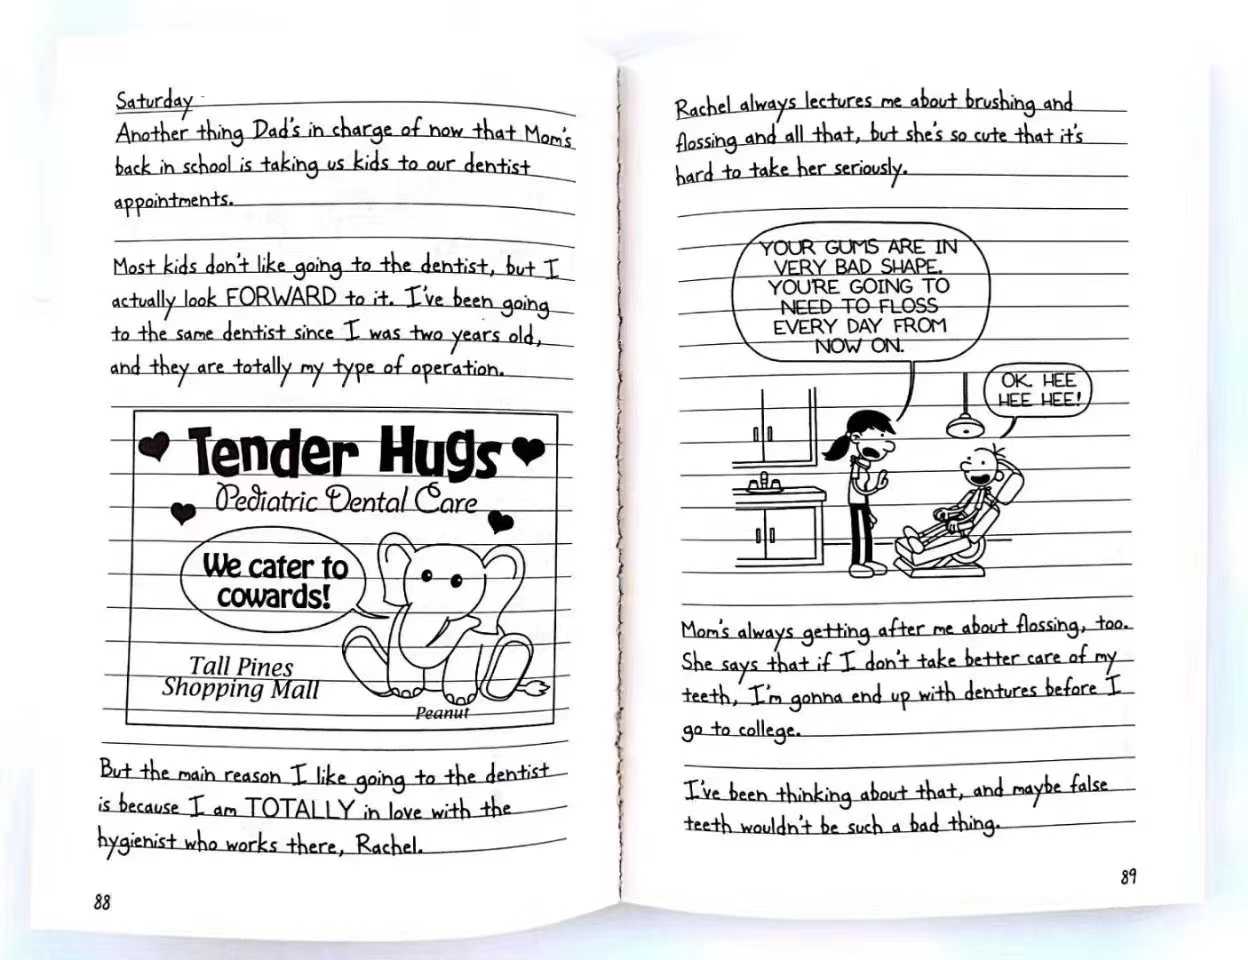 Saturday
Another thing Dad's in charge of now that Mom's
back in school is taking us kids to our dentist
appointments.
Most kids don't like going to the dentist, but I
actually look FORWARD to it. I've been going
to the same dentist since I was two years old,
and they are totally my type of operation.
Tender Hugs
Pediatric Dental Care
We cater to
cowards!
Tall Pines
Shopping Mall
Peanut
But the main reason I like going to the dentist
is because I am TOTALLY in love with the
hygienist who works there, Rachel.
88
Rachel always lectures me about brushing and
flossing and all that, but she's so cute that it's
hard to take her seriously.
YOUR GUMS ARE IN
VERY BAD SHAPE.
YOU'RE GOING TO
NEED TO FLOSS
EVERY DAY FROM
NOW ON.
OK. HEE
HEE HEE!
Mom's always getting after me about flossing, too.
She says that if I don't take better care of my
teeth, I'm gonna end up with dentures before I
go to college.
I've been thinking about that, and maybe false
teeth wouldn't be such a bad thing.
89